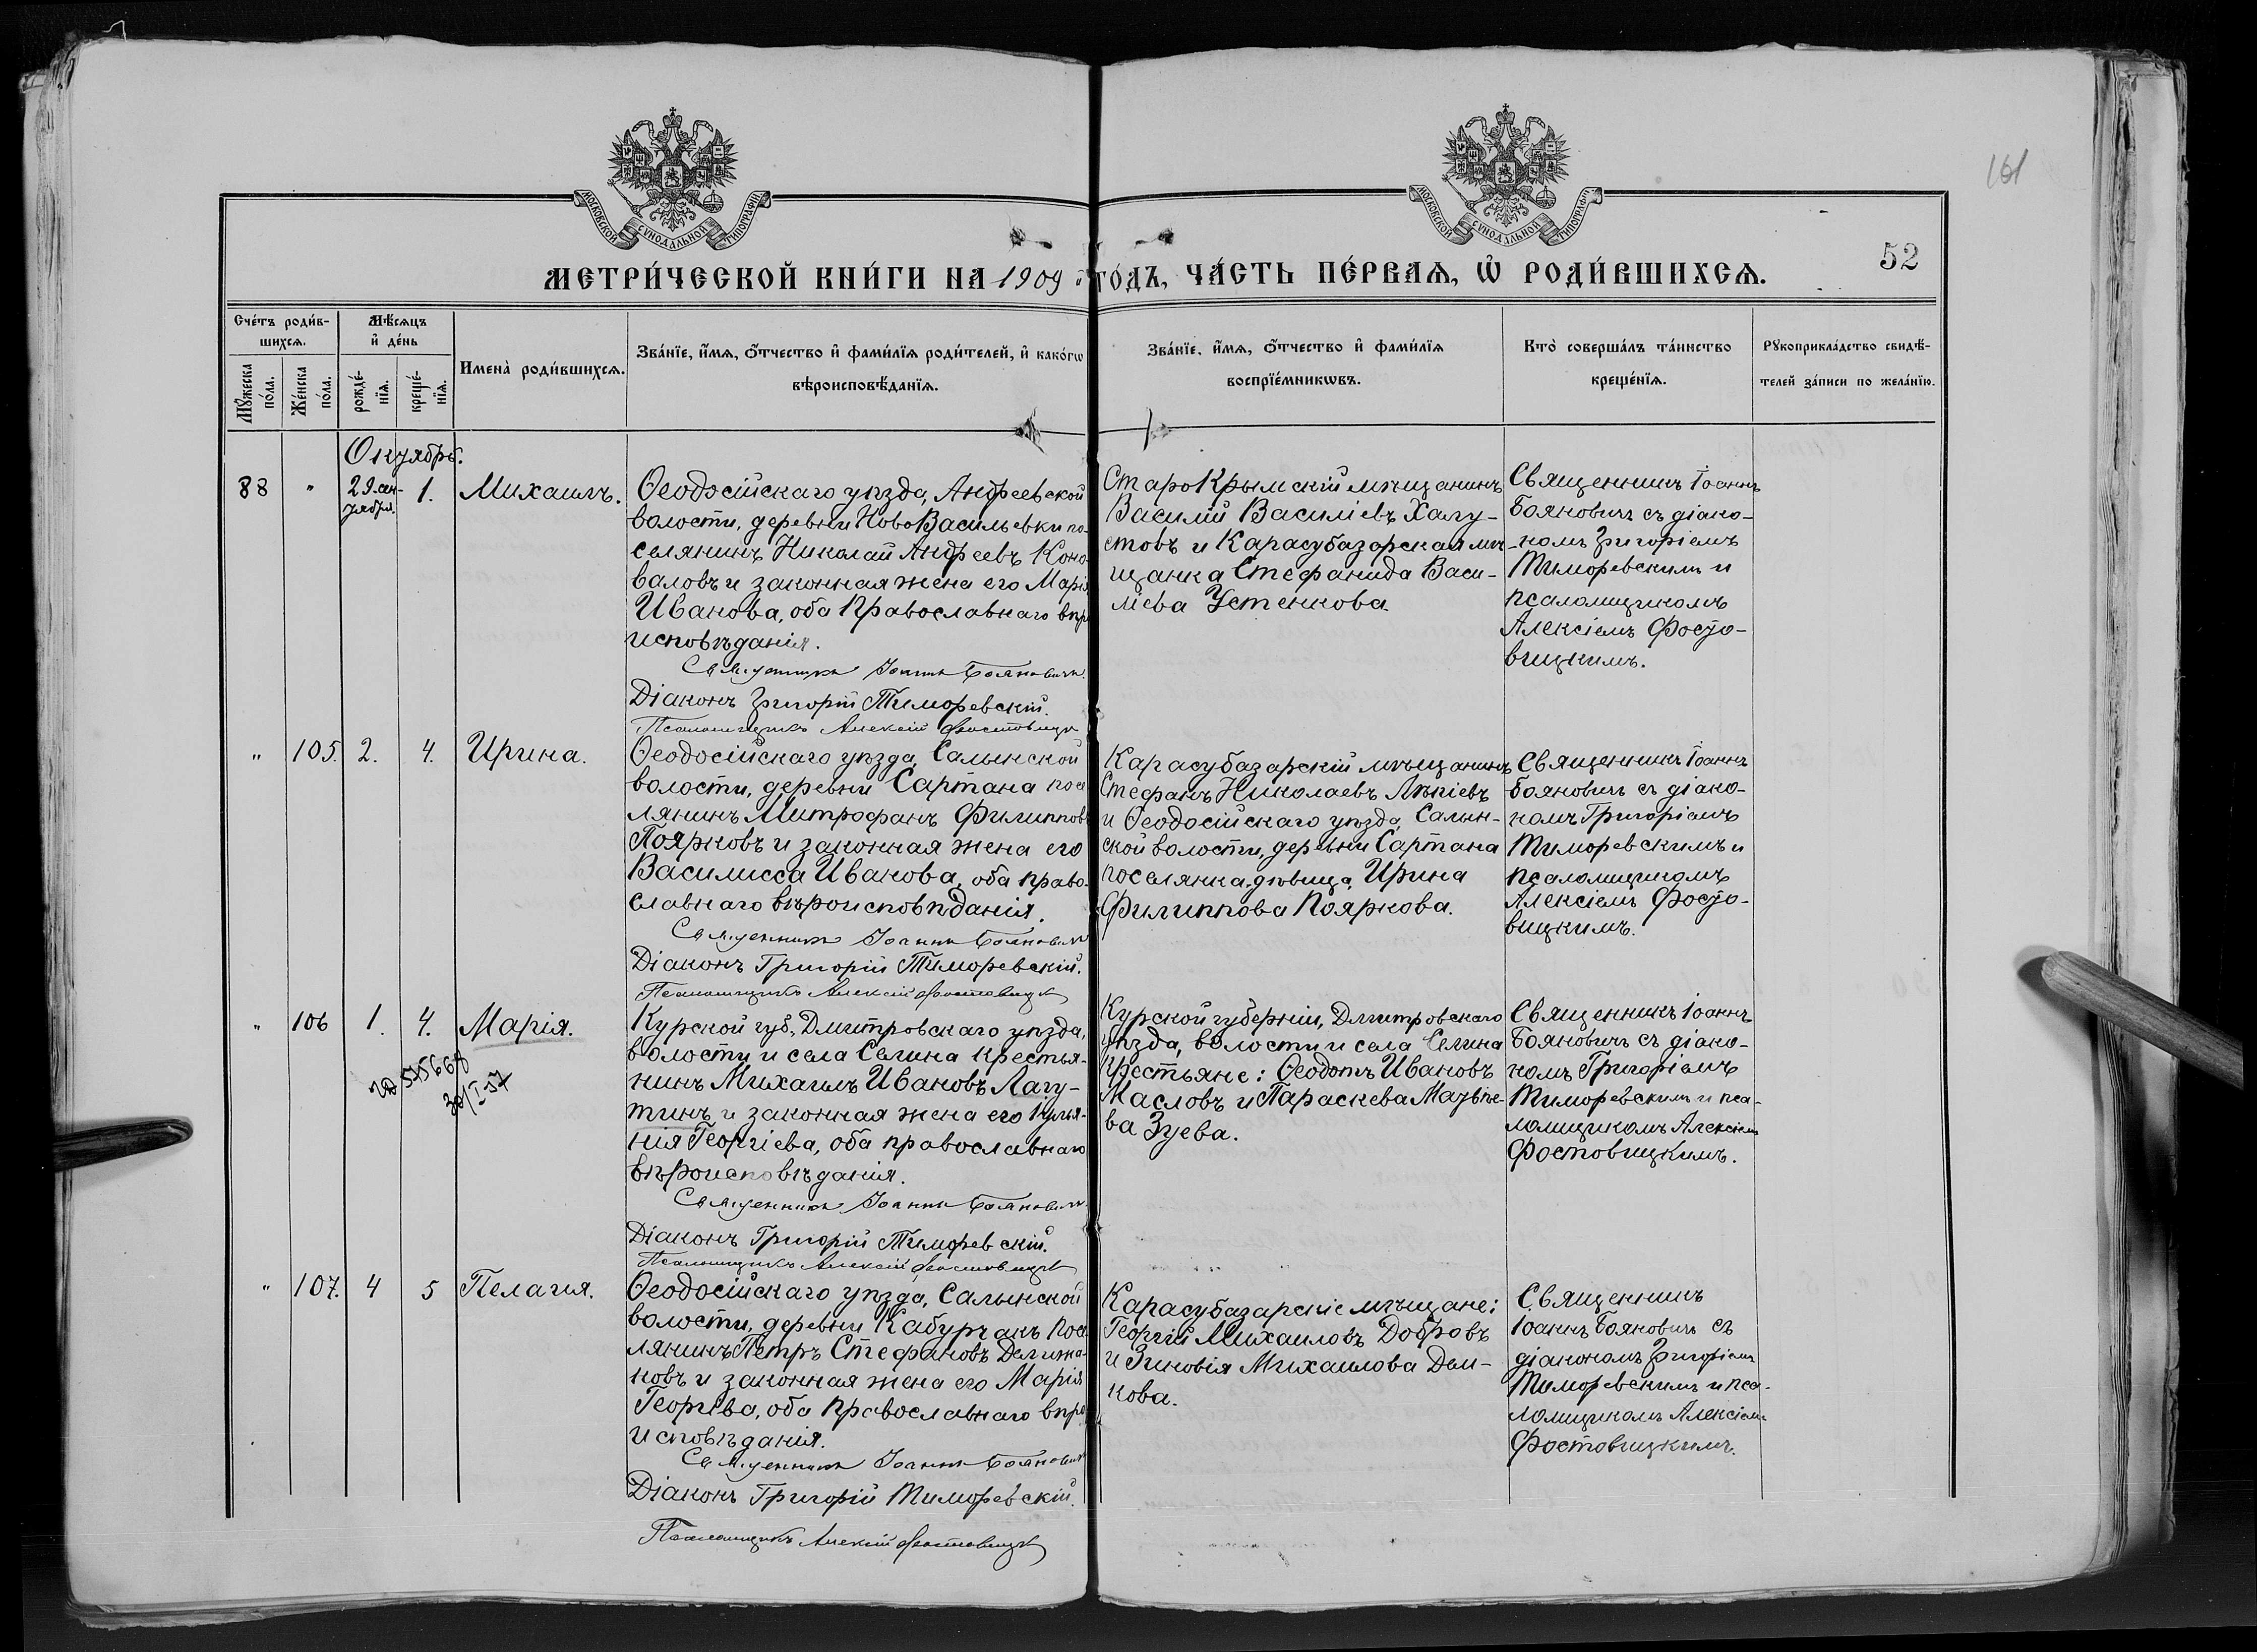 161
52
МОСКОВСКОЙ СѴНОДАЛЬНОЙ ТИПОГРАФІИ
МОСКОВСКОЙ СѴНОДАЛЬНОЙ ТИПОГРАФІИ
МЕТРИ́ЧЕСКОЙ КНИ́ГИ НА 1909 й ГО́ДЪ, ЧА́СТЬ ПЕ́РВАѦ, Ѡ҆ РОДИ́ВШИХСѦ.
Сче́тъ роди́в-
шихсѧ.
Мꙋ́жеска
по́ла.
Же́нска
по́ла.
Мѣ́сѧцъ
и҆ де́нь
рожде́-
нїѧ.
креще́-
нїѧ.
Имена̀ роди́вшихсѧ.
Зва́нїе, и҆́мѧ, ѻ҆́тчество и҆ фами́лїѧ роди́телей, и҆ како́гѡ
вѣроисповѣ́данїѧ.
Зва́нїе, и҆́мѧ, ѻ҆́тчество и҆ фами́лїѧ
воспрїе́мникѡвъ.
Кто̀ соверша́лъ та́инство
креще́нїѧ.
Рꙋкоприкла́дство свидѣ́-
телей за́писи по жела́нїю.
Октябрь.
88 " 29 сен-
тября. 1. Михаилъ.
Ѳеодосійскаго уѣзда, Андреевской
волости, деревни НовоВасильевки по-
селянинъ Николай Андреевъ Коно-
валовъ и законная жена его Марія
Иванова, оба Православнаго вѣро
исповѣданія.
Священникъ Іоаннъ Бояновичъ
Діаконъ Григорій Тиморевскій.
Псаломщикъ Алексій Фостовицкій
СтароКрымскій мѣщанинъ
Василій Василіевъ Халу-
стовъ и Карасубазарская мѣ-
щанка Стефанида Васи-
лiева Устенкова.
Священникъ Іоаннъ
Бояновичъ съ діако-
номъ Григоріемъ
Тиморевскимъ и
псаломщикомъ
Алексіемъ Фосто-
вицкимъ.
" 105. 2. 4. Ирина.
Ѳеодосійскаго уѣзда, Салынской
волости, деревни Сартана посе
лянинъ Митрофанъ Филипповъ
Поярковъ и законная жена его
Василисса Иванова, оба право-
славнаго вѣроисповѣданія.
Священникъ Іоаннъ Бояновичъ
Діаконъ Григорій Тиморевскій.
Псаломщикъ Алексій Фостовицкій
Карасубазарскій мѣщанинъ
Стефанъ Николаевъ
и Ѳеодосійскаго уѣзда, Салын-
ской волости, деревни Сартана
поселянка, дѣвица, Ирина
Филиппова Пояркова.
Священникъ Іоаннъ
Бояновичъ съ діако-
номъ Григоріемъ
Тиморевскимъ и
псаломщикомъ
Алексіемъ Фосто-
вицкимъ.
" 106 1. 4. Марія.
575668
30/I-57
Курской губ., Дмитровскаго уѣзда,
волости и села Селина крестья-
нинъ Михаилъ Ивановъ Лагу-
тинъ и законная жена его
Георгіева, оба православнаго
вѣроисповѣданія.
Священникъ Іоаннъ Бояновичъ
Діаконъ Григорій Тиморевскій.
Псаломщикъ Алексій Фостовицкій
Курской губерніи, Дмитровскаго
уѣзда, волости и села Селина
Крестьяне: Ѳеодотъ Ивановъ
Масловъ и Параскева Матвѣе-
ва Зуева.
Священникъ Іоаннъ
Бояновичъ съ діако-
номъ Григоріемъ
Тиморевскимъ и пса-
ломщикомъ Алексіемъ
Фостовицкимъ.
" 107. 4 5 Пелагія.
Ѳеодосійскаго уѣзда, Салынской
волости, деревни Кабурчакъ посе
лянинъ Петръ Стефановъ Делижа-
ковъ и законная жена его Марія
Георгіева, оба Православнаго вѣро
исповѣданія.
Священникъ Іоаннъ Бояновичъ
Діаконъ Григорій Тиморевскій.
Псаломщикъ Алексій Фостовицкій
Карасубазарскіе мѣщане:
Георгій Михаиловъ Добровъ
и Зиновія Михаилова Дем-
кова.
Священникъ
Іоаннъ Бояновичъ съ
діакономъ Григоріемъ
Тиморевскимъ и пса-
ломщикомъ Алексіемъ
Фостовицкимъ.